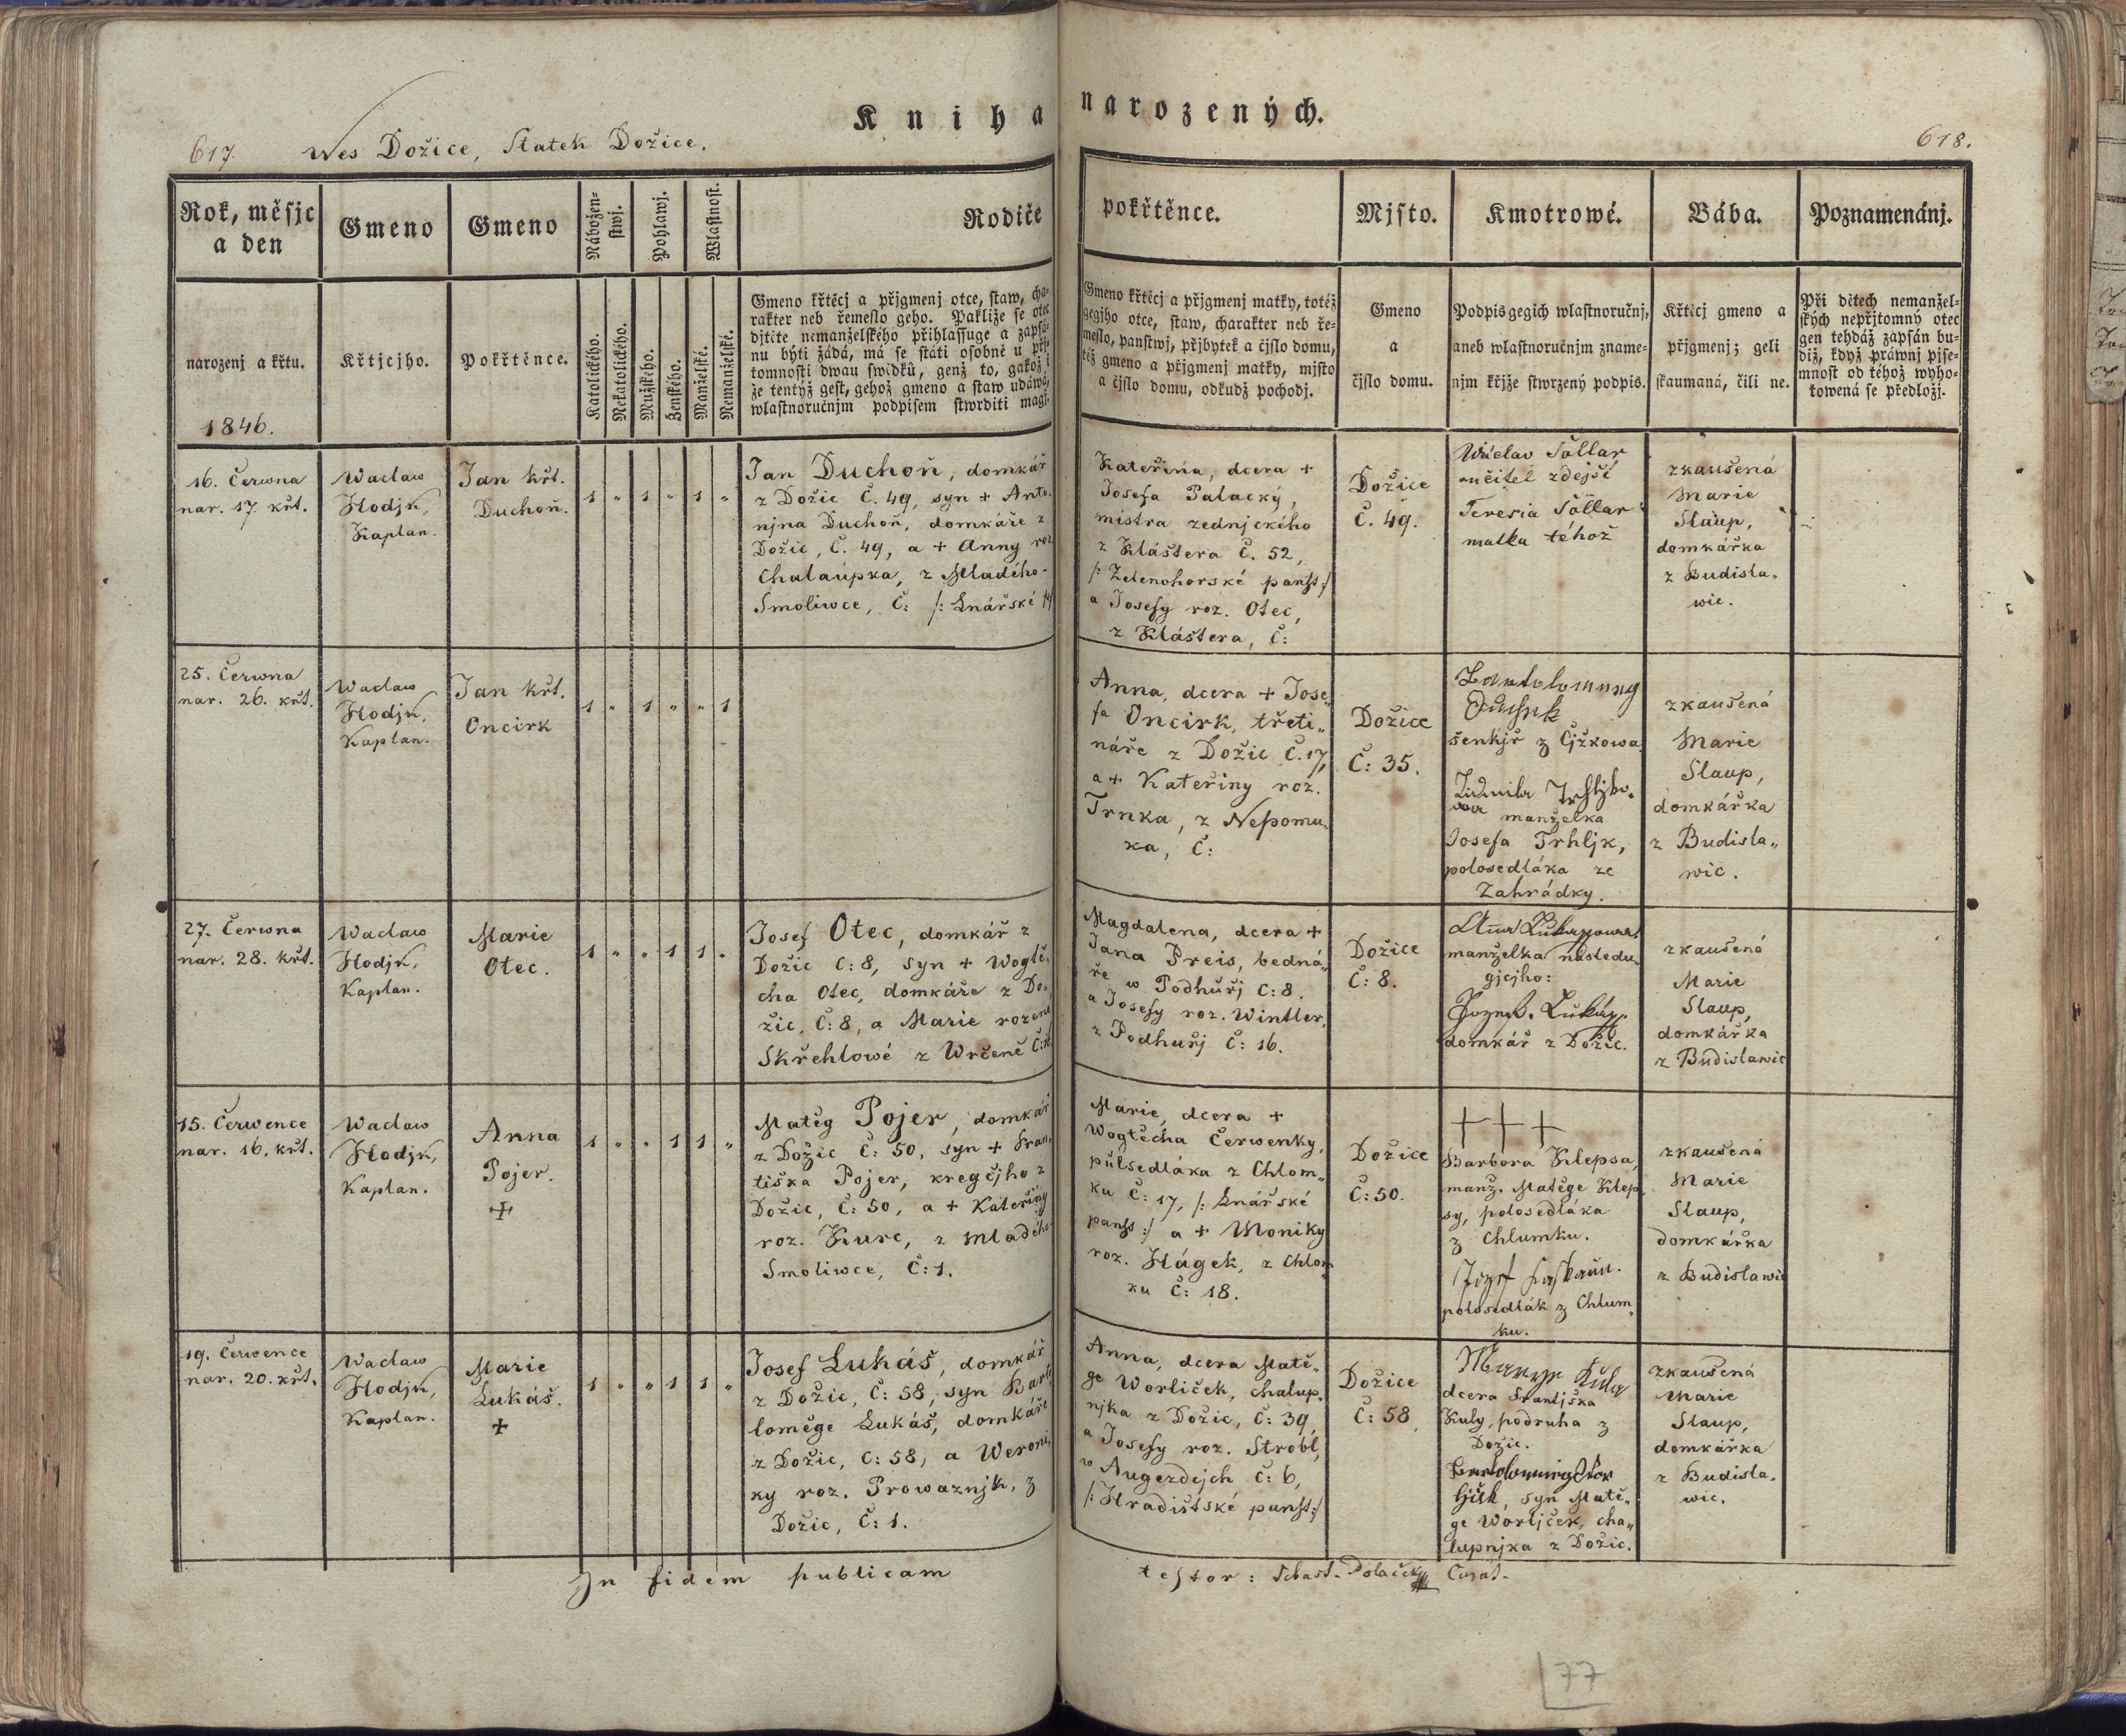 Kniha narozených.
617. Wes Dožice, Statek Dožice. 618.
Rok, měsjc
a den
narozenj a křtu.
1846.
Gmeno
Křtjcjho.
Gmeno
Pokřtěnce.
Nábožen-
stwj.
Katolického.
Nekatolického.
Pohlawj.
Mužského.
Ženského.
Wlastnost.
Manželské.
Nemanželské.
Rodiče pokřtěnce.
Gmeno křtěcj a přjgmenj otce, staw, cha-
rakter neb řemeslo geho. Pakliže se otec
djtěte nemanželského přihlassuge a zapsá-
nu býti žádá, má se státi osobně u přj-
tomnosti dwau swidků, genž to, gakož i
že tentýž gest, gehož gmeno a staw udáwá,
wlastnoručnjm podpisem stwrditi magj.
Gmeno křtěcj a přjgmenj matky, totéž
gegjho otce, staw, charakter neb ře-
meslo, panstwj, přjbytek a čjslo domu,
též gmeno a přjgmenj matky, mjsto
a čjslo domu, odkudž pochodj.
Mjsto.
Gmeno
a
čjslo domu.
Kmotrowé.
Podpis gegich wlastnoručnj,
aneb wlastnoručnjm zname-
njm křjže stwrzený podpis.
Bába.
Křtěcj gmeno a
přjgmenj; geli
zkaumaná, čili ne.
Poznamenánj.
Při dětech nemanžel-
ských nepřjtomný otec
gen tehdáž zapsán bu-
diž, když práwnj pjse-
mnost od téhož wyho-
towená se předložj.
16. Čerwna
nar. 17. křt.
Waclaw
Hodjk,
Kaplan.
Jan křt.
Duchoň.
1 " 1 " 1 "
Jan Duchoň, domkář
z Dožic Č. 49, syn + Anto-
njna Duchoň, domkáře z
Dožic, Č. 49, a + Anny roz.
Chalaupka, z Mladého-
Smoliwce, Č: /: Lnářské
Kateřina, dcera +
Josefa Palacký,
mistra zednjckého
z Kláštera Č. 52,
/: Zelenohorské panst :/
a Josefy roz. Otec,
z Kláštera, Č:
Dožice
Č. 49.
Wáclav Söllar
učitel zdejší
Teresia Söllar
matka téhož
zkaušená
Marie
Slaup,
domkářka
z Budisla-
wic.
25. Čerwna
nar. 26. křt.
Waclaw
Hodjk,
Kaplan.
Jan křt.
Oncirk
1 " 1 " " 1
Anna, dcera + Jose-
fa Oncirk, třeti-
náře z Dožic Č. 17,
a + Kateřiny roz.
Trnka, z Nepomu-
ka, Č:
Dožice
Č: 35.
šenkjř z Cjžkowa
manželka
Josefa Trhljk,
polosedláka ze
Zahrádky.
zkaušená
Marie
Slaup,
domkářka
z Budisla-
wic.
27. Čerwna
nar. 28. křt.
Waclaw
Hodjk,
Kaplan.
Marie
Otec.
1 " " 1 1 "
Josef Otec, domkář z
Dožic Č: 8, syn + Wogtě-
cha Otec, domkáře z Do-
žic, Č: 8, a Marie rozené
Skřehlowé z Wrčeně
Magdalena, dcera +
Jana Preis, bedná-
ře w Podhuřj Č: 8.
a Josefy roz. Wintler,
z Podhuřj Č: 16.
Dožice
Č: 8.
manželka následu-
gjcjho:
domkář z Dožic.
zkaušená
Marie
Slaup,
domkářka
z Budislawic
15. Čerwence
nar. 16. křt.
Waclaw
Hodjk,
Kaplan.
Anna
Pojer.
+
1 " " 1 1 "
Matěg Pojer, domkář
z Dožic Č: 50, syn + Fran-
tiška Pojer, kregčjho z
Dožic, Č: 50, a + Kateřiny
roz. Kurc, z Mladého
Smoliwce, Č: 1.
Marie, dcera +
Wogtěcha Čerwenky,
půlsedláka z Chlom-
ku Č: 17, /: Lnářské
panst :/ a + Moniky
roz. Hágek, z Chlom-
ku Č: 18.
Dožice
Č: 50.
+++
Barbora Klepsa,
manž. Matěge Klep-
sy, polosedláka
z Chlumku.
polosedlák z Chlum-
ku.
zkaušená
Marie
Slaup,
domkářka
z Budislawic
19. Čerwence
nar. 20. křt.
Waclaw
Hodjk,
Kaplan.
Marie
Lukáš.
+
1 " " 1 1 "
Josef Lukáš, domkář
z Dožic, Č: 58, syn Barto-
loměge Lukáš, domkáře
z Dožic, Č: 58, a Weroni-
ky roz. Prowaznjk, z
Dožic, Č: 1.
Anna, dcera Matě-
ge Worliček, chalup-
njka z Dožic, Č: 39,
a Josefy roz. Strobl,
w Augezdejch Č: 6,
/: Hradištské panst :/
Dožice
Č: 58
dcera Frantjška
Kuly, podruha z
Dožic.
syn Matě-
ge Worljček, cha-
lupnjka z Dožic.
zkaušená
Marie
Slaup,
domkářka
z Budisla-
wic.
In fidem publicam testor: Sebast. Polaček Curat.
77